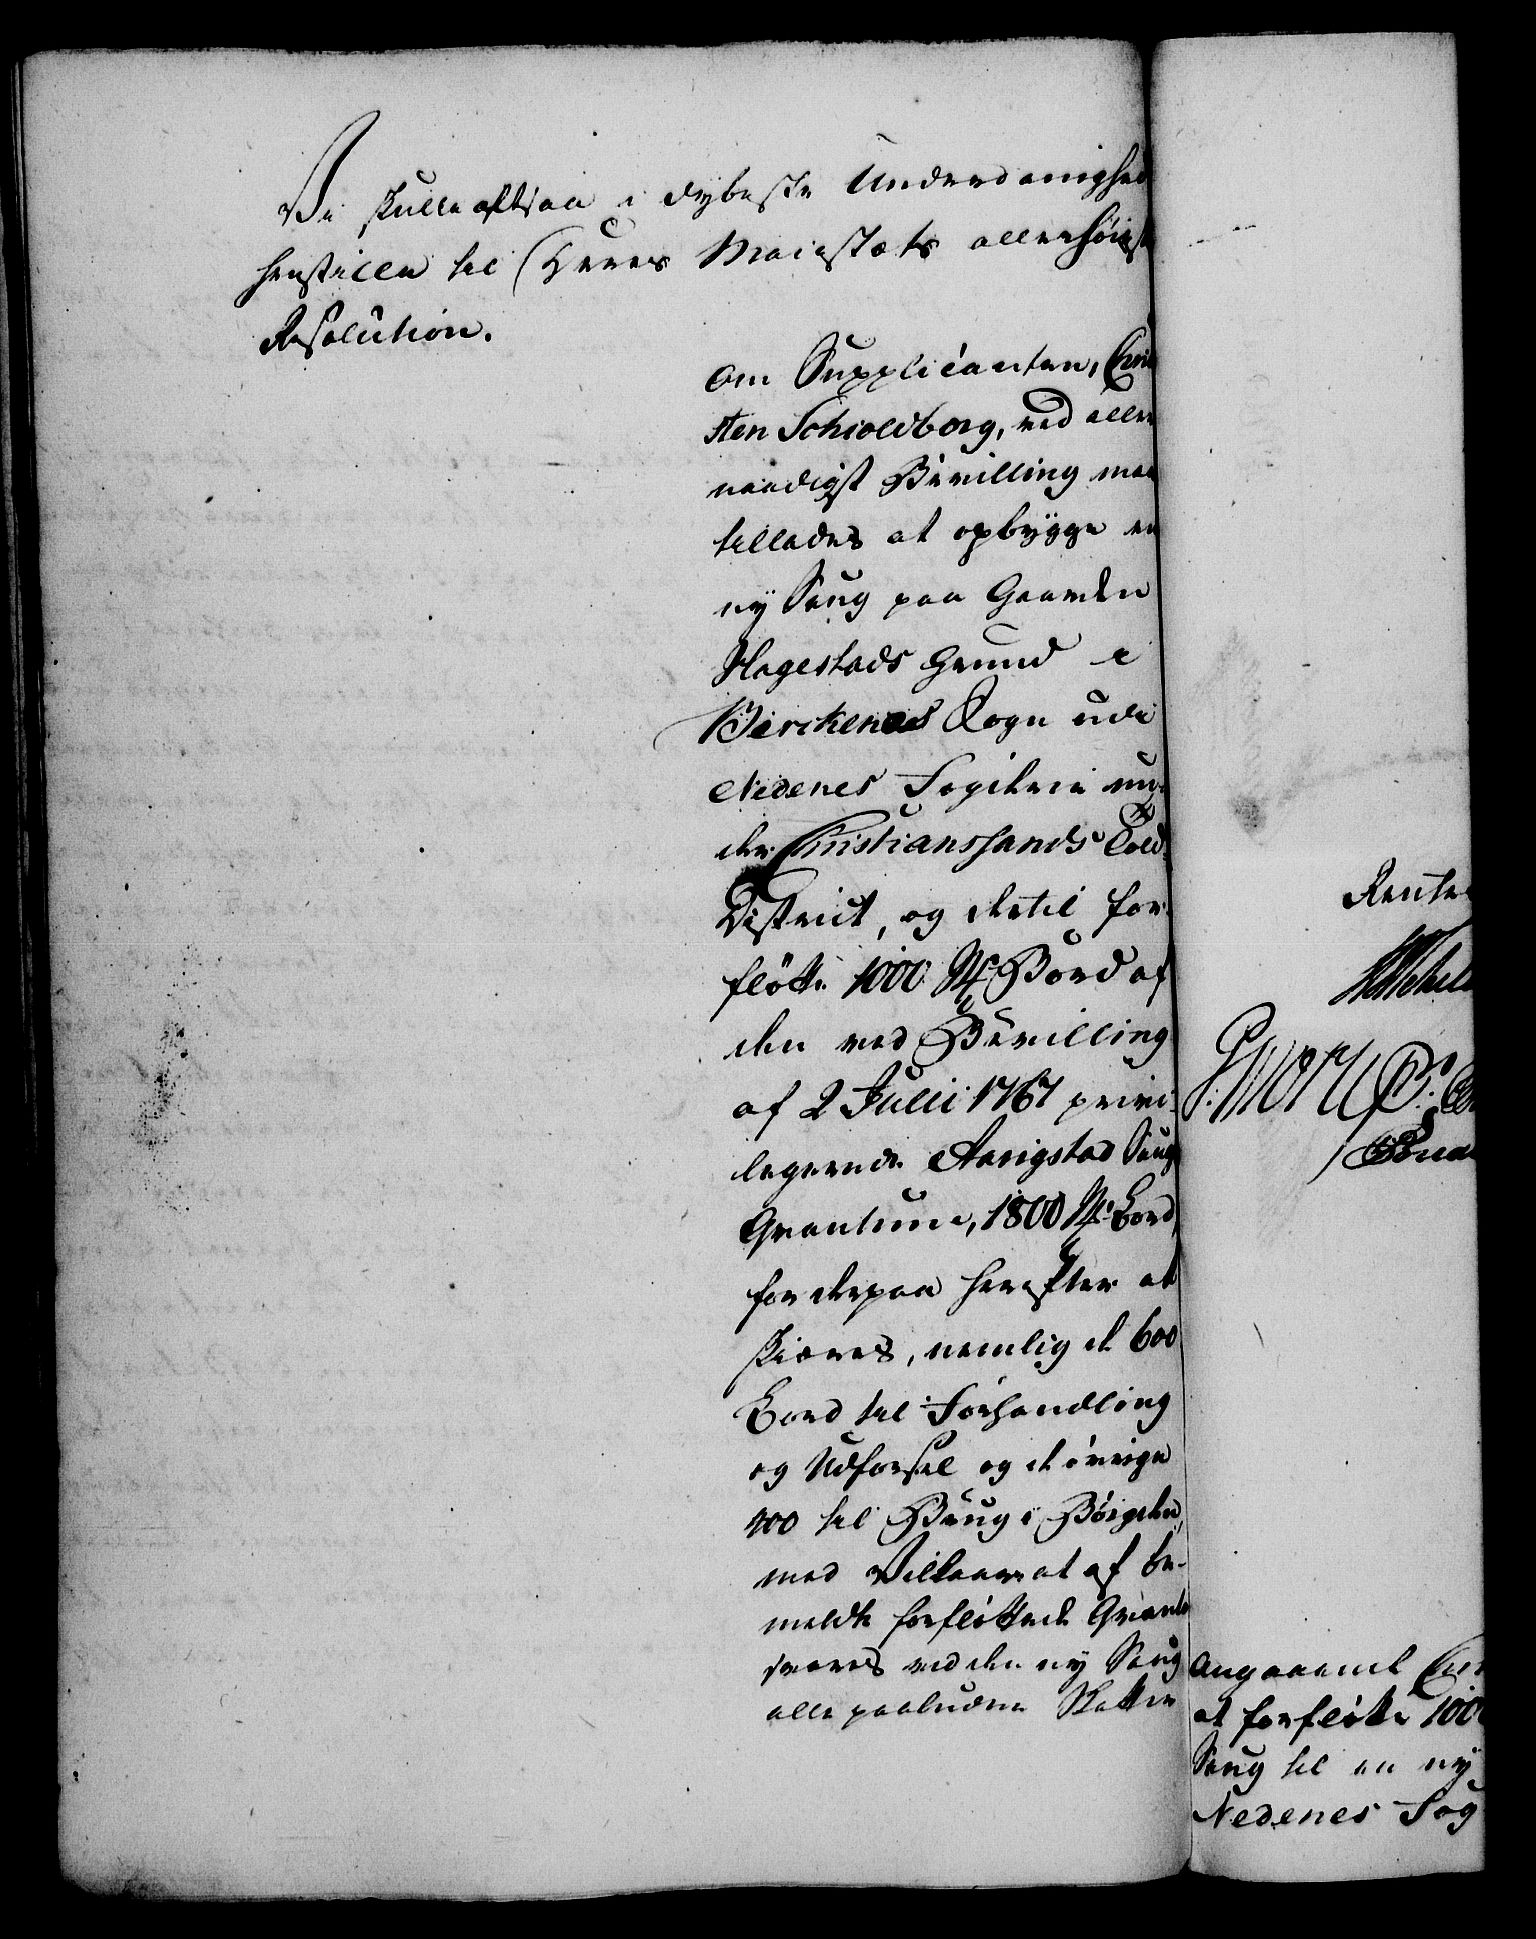 Vi skulle altsaa i dybeste Underdanighed
henstille til Deres Majestæts allerhøiest
Resolution.
Om Supplicanten, Chri
sten Schioldborg, ved aller
naadigst Bevilling maa
tillades at opbygge en
ny Saug paa Gaarden
Hagestads Grund i
Birckenes Sogn udi
Nedenes Fogderie un-
der Christianssands Told-
District, og dertil for-
flötte 1000 St. Bord af
den ved Bevilling
af 2 Julii 1767 privi-
legerede Aarigstad Saugs
Qvantum, 1800 St. Bord,
for derpaa herefter at
skiæres, nemlig de 600
Bord til Forhandling
og Udførsel og de øvrige
400 til Brug i Bøigden,
med Vilkaar at af be-
meldte forflöttede Qvantum
svares ved den ny Saug
alle paabudne Skatter
Rente
P:
Angaaende Chri
at forflötte 1000
Saug til en ny
Nedenes Fog